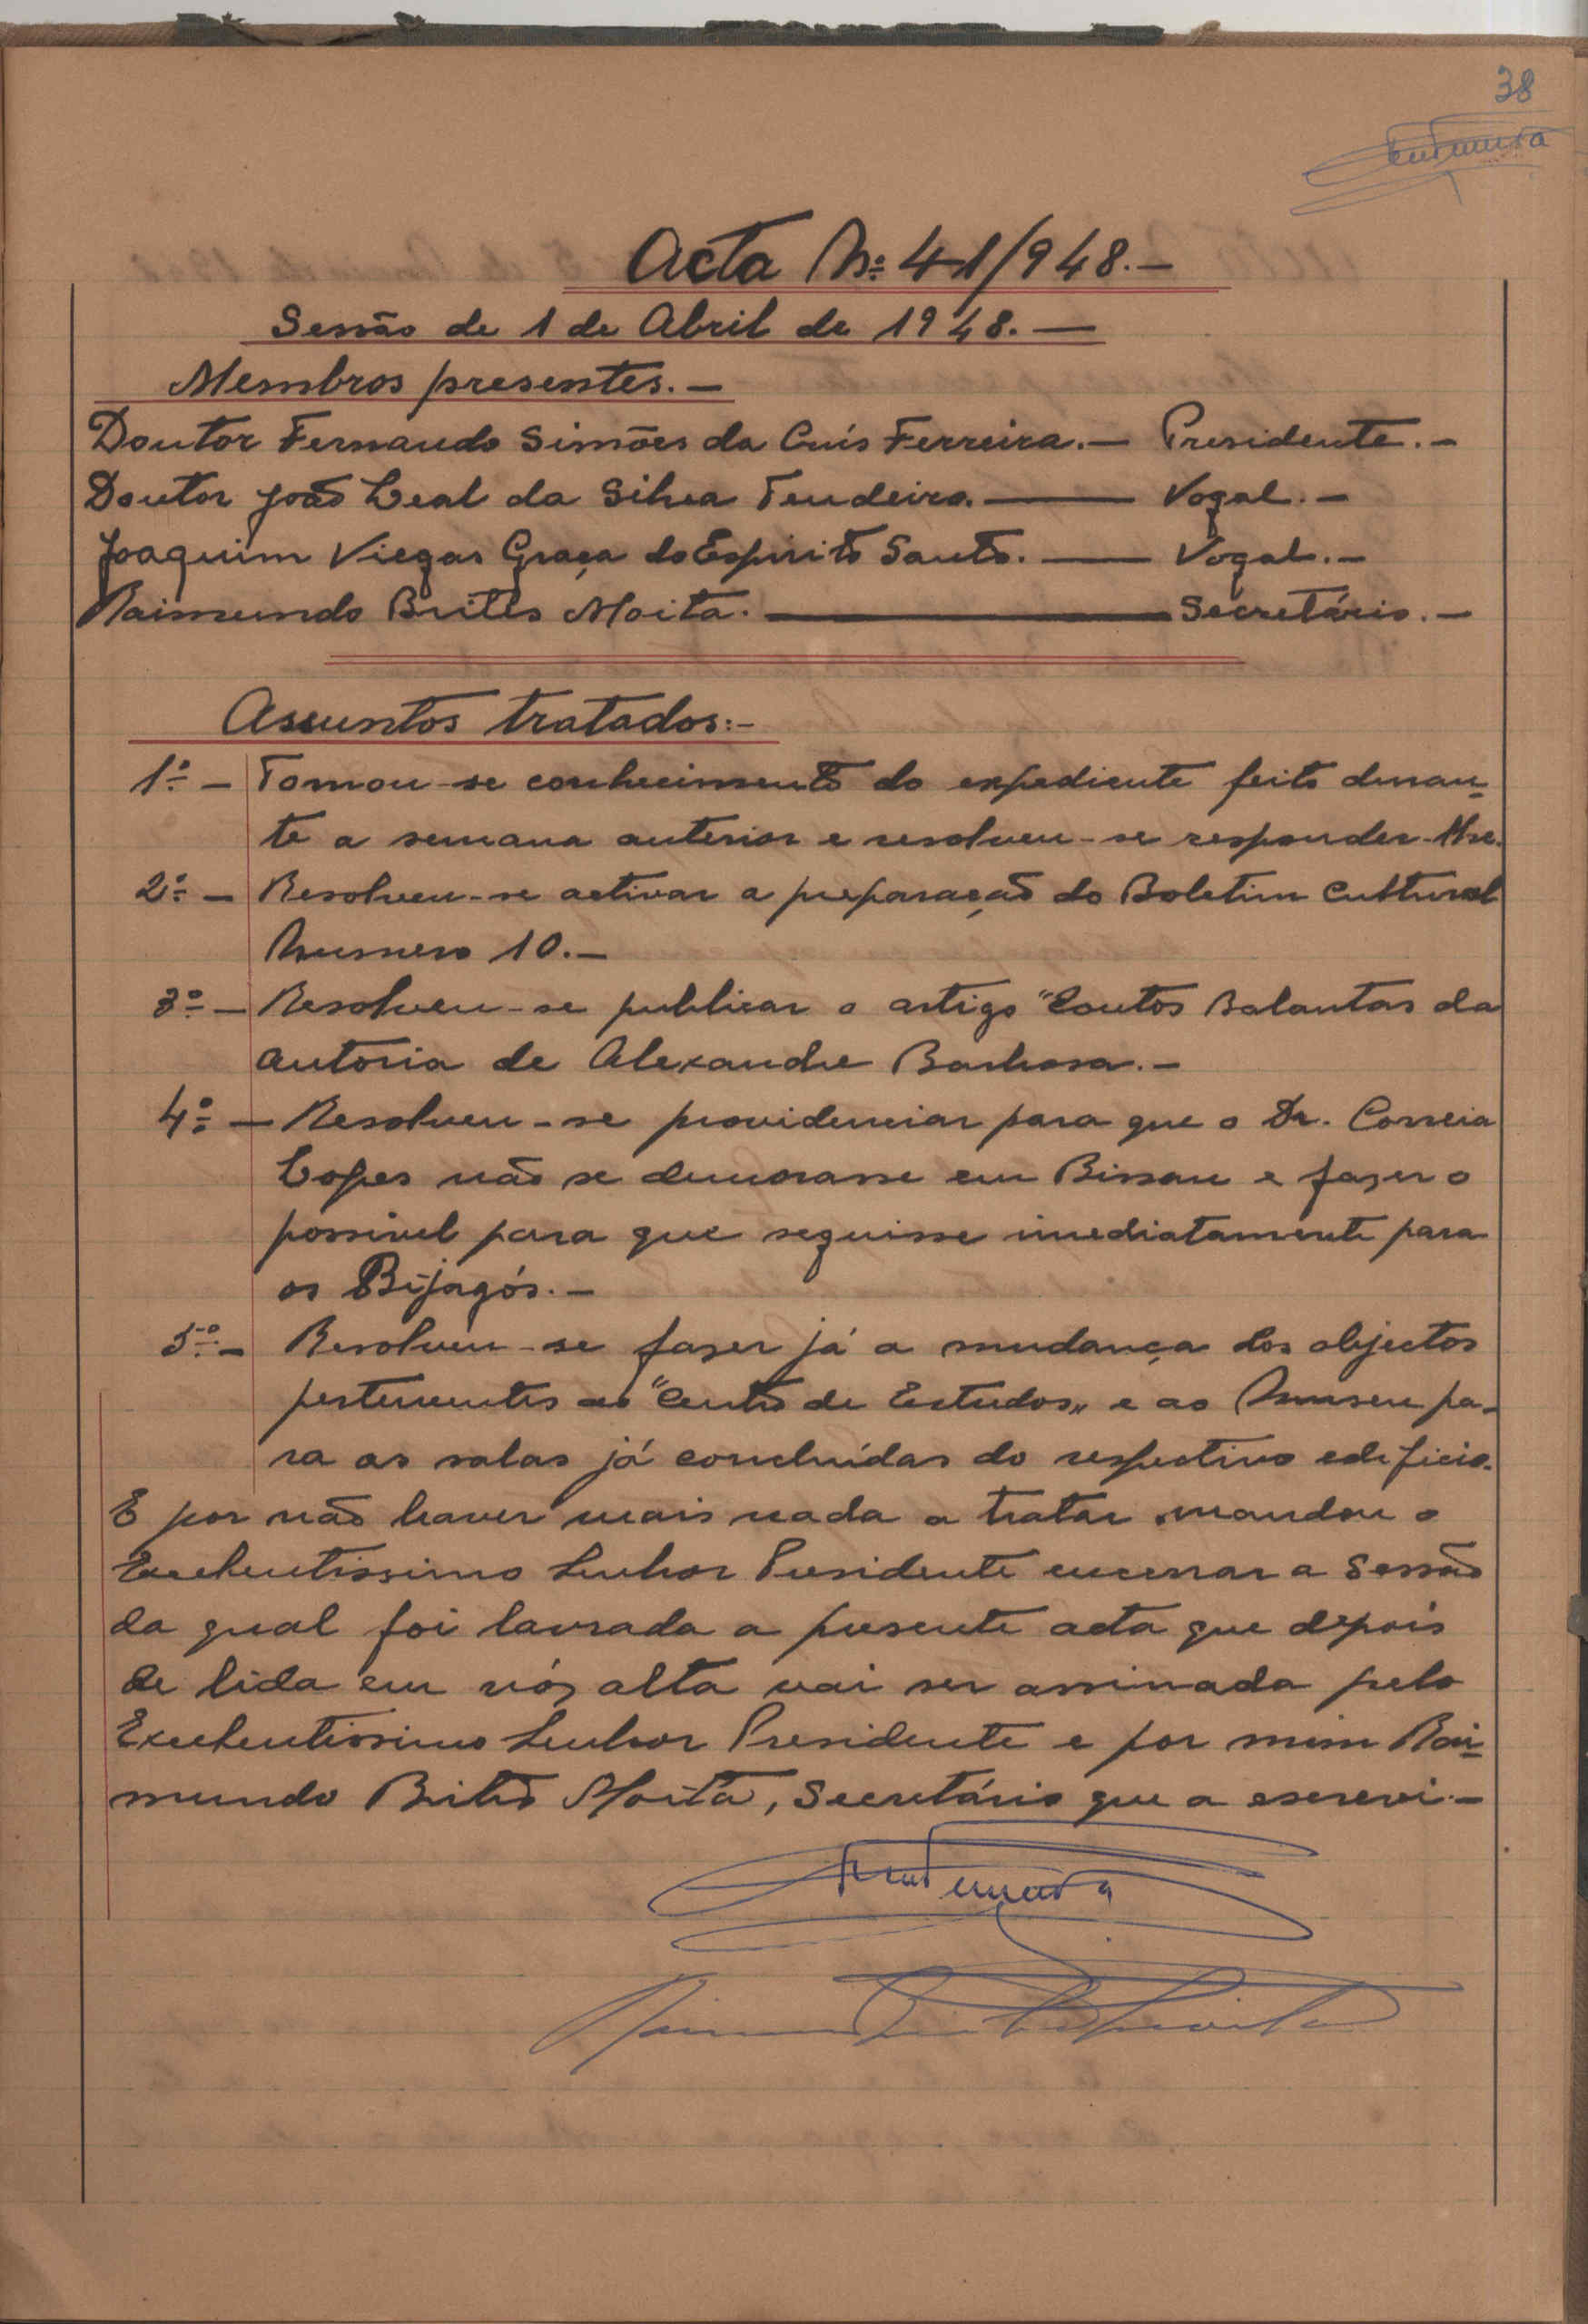 38
Acta Nº 41/948.—
Sessão de 1 de Abril de 1948.—
Membros presentes.—
Doutor Fernando Simões da Cruis Ferreira.— Presidente.—
Doutor João Leal da Silva Tendeiro.— Vogal.—
Joaquim Viegas Graça do Espirito Santo.— Vogal.—
Raimundo Brites Moita.— Secretário.—
Assuntos tratados:-
1º - Tomou-se conhecimento do expediente feito duran-
te a semana anterior e resolveu-se responder-lhe.
2º - Resolveu-se activar a preparação do Boletim Cultural
Numero 10.—
3º - Resolveu-se publicar o artigo "Contos Balantas da
autoria de Alexandre Barbosa.—
4º - Resolveu-se providenciar para que o Dr. Correia
Lopes não se demorasse em Bissau e fazer o
possivel para que seguisse imediatamente para
os Bijagós.—
5º - Resolveu-se fazer já a mudança dos objectos
pertencentes ao "Centro de Estudos" e ao Museu pa-
ra as salas já concluídas do respectivo edificio.
E por não haver mais nada a tratar mandou o
Excelentissimo Senhor Presidente encerrar a Sessão
da qual foi lavrada a presente acta que depois
de lida em vós alta vai ser assinada pelo
Excelentissimo Senhor Presidente e por mim Rai-
mundo Brites Moita, Secretário que a escrevi.—